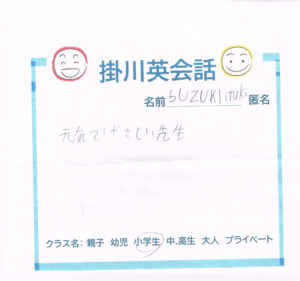 掛川英会話
名前 SUZUKI iTUKi 匿名
元気でやさしい先生
クラス名: 親子 幼児 小学生 中,高生 大人 プライベート